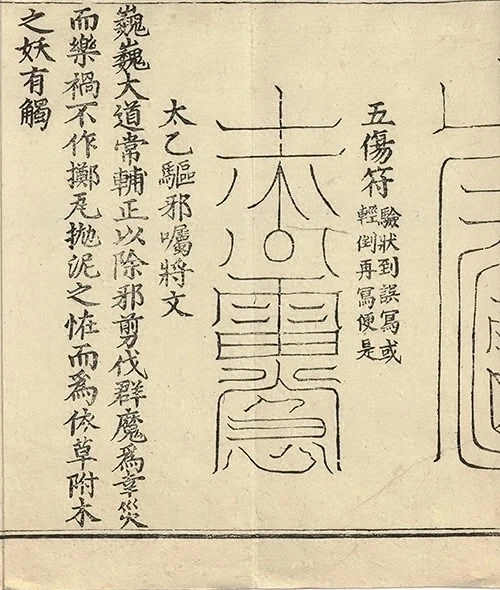 五傷符
驗狀到誤冩或
輕倒再冩便是
太乙驅邪囑將文
巍巍大道常輔正以除邪剪伐群魔為幸災
而樂禍不作擲瓦拋泥之恠而為依草附木
之妖有觸